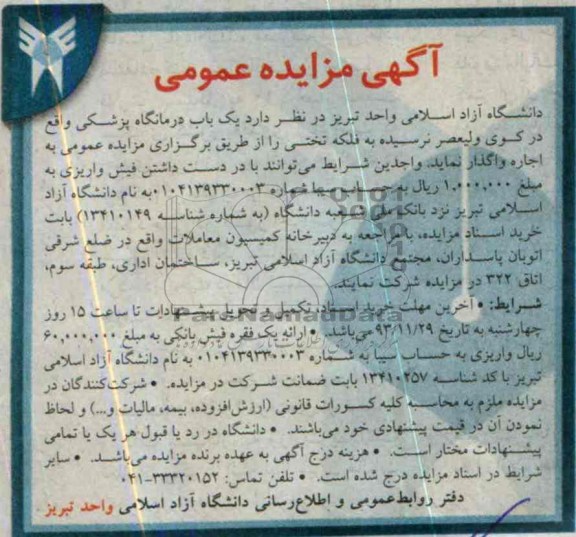 آگهی مزایده عمومی
دانشگاه آزاد اسلامی واحد تبریز در نظر دارد یک باب درمانگاه پزشکی واقع
در کوی ولیعصر نرسیده به فلکه تختی را از طریق برگزاری مزایده عمومی به
اجاره واگذار نماید. واجدین شرایط می‌توانند با در دست داشتن فیش واریزی به
مبلغ ۱.۰۰۰.۰۰۰ ریال به حساب سیبا شماره ۰۱۰۴۱۳۹۳۳۰۰۰۳ به نام دانشگاه آزاد
اسلامی تبریز نزد بانک ملی شعبه دانشگاه (به شماره شناسه ۱۳۴۱۰۱۴۹) بابت
خرید اسناد مزایده، با مراجعه به دبیرخانه کمیسیون معاملات واقع در ضلع شرقی
اتوبان پاسداران، مجتمع دانشگاه آزاد اسلامی تبریز، ساختمان اداری، طبقه سوم،
اتاق ۳۲۲ در مزایده شرکت نمایند.
شرایط: • آخرین مهلت خرید اسناد، تکمیل و تحویل پیشنهادات تا ساعت ۱۵ روز
چهارشنبه به تاریخ ۹۳/۱۱/۲۹ می‌باشد. • ارائه یک فقره فیش بانکی به مبلغ ۶۰,۰۰۰,۰۰۰
ریال واریزی به حساب سیبا به شماره ۰۱۰۴۱۳۹۳۳۰۰۰۳ به نام دانشگاه آزاد اسلامی
تبریز با کد شناسه ۱۳۴۱۰۲۵۷ بابت ضمانت شرکت در مزایده. • شرکت‌کنندگان در
مزایده ملزم به محاسبه کلیه کسورات قانونی (ارزش‌افزوده، بیمه، مالیات و...) و لحاظ
نمودن آن در قیمت پیشنهادی خود می‌باشند. • دانشگاه در رد یا قبول هر یک یا تمامی
پیشنهادات مختار است. • هزینه درج آگهی به عهده برنده مزایده می‌باشد. • سایر
شرایط در اسناد مزایده درج شده است. • تلفن تماس: ۳۳۳۲۰۱۵۲-۰۴۱
دفتر روابط‌عمومی و اطلاع‌رسانی دانشگاه آزاد اسلامی واحد تبریز
ParsNamadData